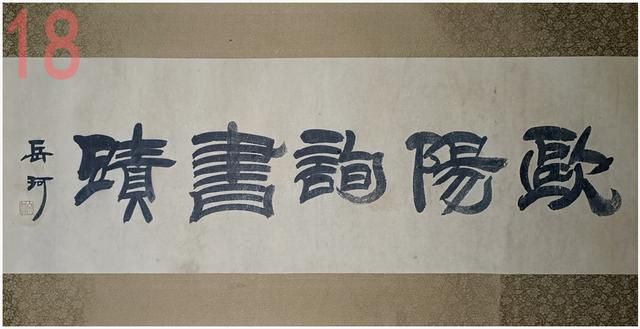 18
歐陽詢書蹟
岳珂